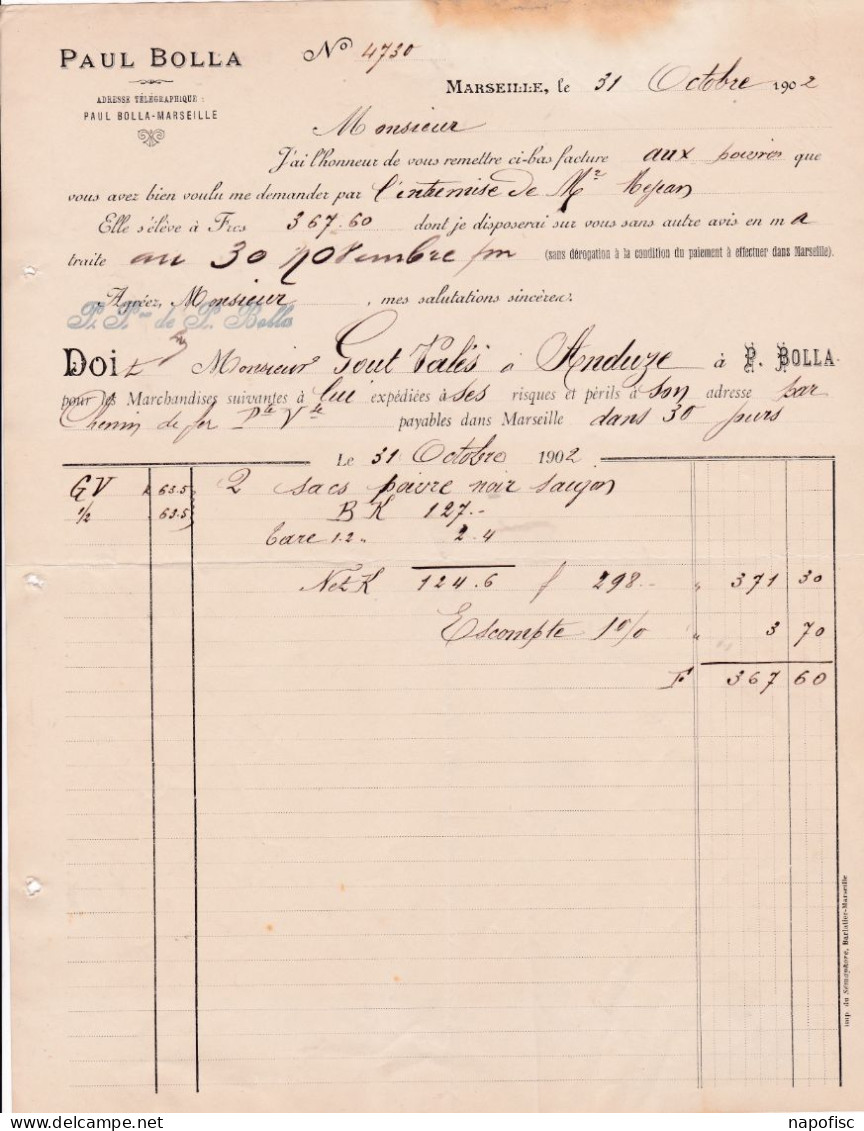 PAUL BOLLA
No 4730
MARSEILLE, le 31 Octobre 1902
ADRESSE TÉLÉGRAPHIQUE :
PAUL BOLLA-MARSEILLE
Monsieur
J'ai l'honneur de vous remettre ci-bas facture aux poivres que
vous avez bien voulu me demander par l'entremise de Mr
Elle s'élève à Frcs 367.60 dont je disposerai sur vous sans autre avis en ma
traite au 30 Novembre (sans dérogation à la condition du paiement à effectuer dans Marseille).
Agréez, Monsieur, mes salutations sincères.
P. Pon de P. Bolla
Doit Monsieur Gout Valès à Anduze à P. BOLLA
pour les Marchandises suivantes à lui expédiées à ses risques et périls à son adresse par
Chemin de fer Pte Vse payables dans Marseille dans 30 jours
Le 31 Octobre 1902
GV K 63.5 2 sacs poivre noir Saigon
1/2 63.5 B K 127.-
Tare 1.2 " 2.4
Net K 124.6 f 298.- " 371 30
Escompte 1 o/o " 3 70
F 367 60
Imp. du Sémaphore, Barlatier-Marseille
napofisc